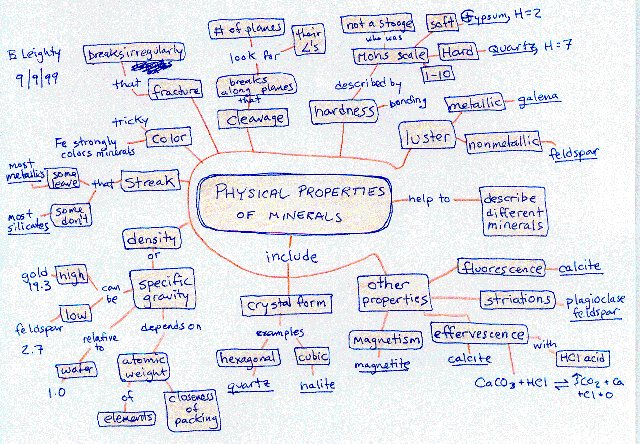 B Leighty
9/9/99
PHYSICAL PROPERTIES
OF MINERALS
breaks irregularly
that
fracture
# of planes
their
∠'s
look for
breaks
along planes
that
cleavage
not a stooge
who was
Mohs scale
soft
Gypsum, H=2
Hard
Quartz, H=7
1-10
described by
hardness
bonding
luster
metallic
galena
nonmetallic
feldspar
tricky
color
Fe strongly
colors minerals
most
metallics
some
leave
that
streak
most
silicates
some
don't
help to
describe
different
minerals
include
density
or
specific
gravity
can
be
high
gold
19.3
low
feldspar
2.7
relative
to
water
1.0
depends on
atomic
weight
of
elements
closeness
of
packing
crystal form
examples
hexagonal
quartz
cubic
halite
other
properties
fluorescence
calcite
striations
plagioclase
feldspar
magnetism
magnetite
effervescence
calcite
with
HCl acid
CaCO3 + HCl ⇌ ↑CO2 + Ca
+Cl + O